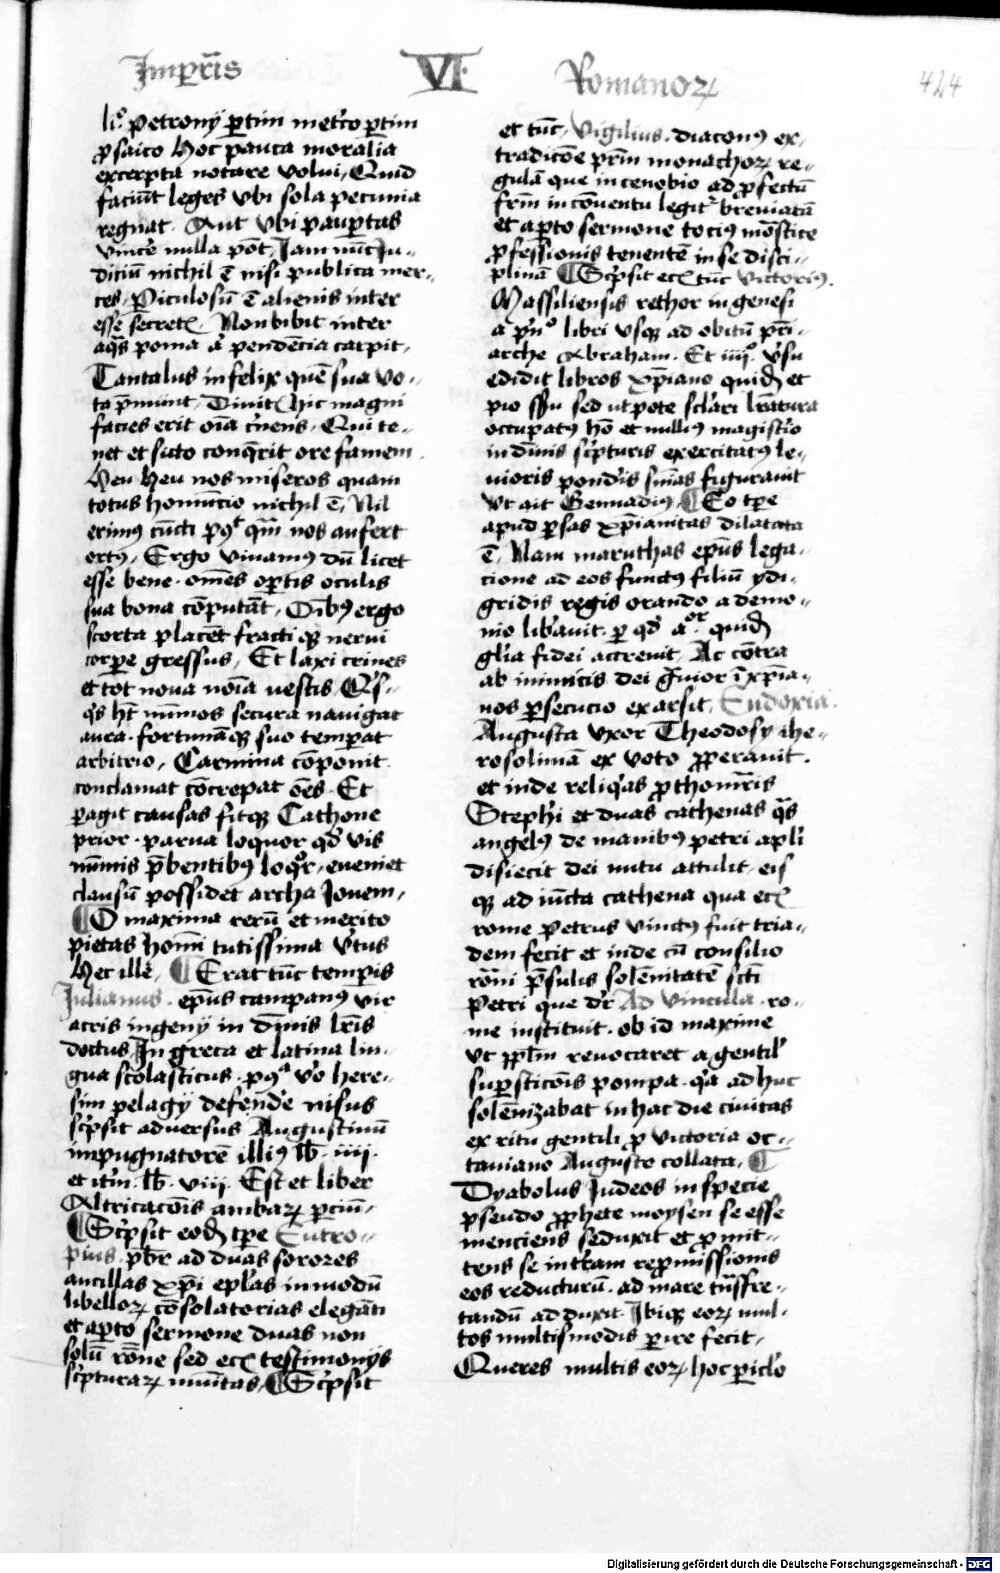 Imp̲r̄is VI Romanoꝝ 424
li°. petronÿ ꝑtim met'co ꝑtim
ꝓsaico hoc pauca moralia
excerpta notare volui, Quid
faciūt leges vbi sola pecunia
regnat. Aut vbi paup̲tas
vincē nulla pōt, Jam nūc Ju-
diciū nichil ē nisi publica mer-
ces, Piculosū ē alienis inter
esse secretꝭ, Non bibit inter
aq̄s poma aut pendēcia carpit,
Tantalus infelix quē sua vo-
ta p̄mūnt, Diuitꝭ hic magni
facies erit oīa c'nens, Qui te-
net et sicco conq̄rit ore famem
Heu heu nos miseros quam
totus homūcio nichil ē, Nil
erimꝰ cūcti pꝰqm̄ nos aufert
orcꝰ, Ergo viuamꝰ dū licet
esse bene. om̄es op̲tis oculis
sua bona cōputāt, Oībꝰ ergo
scorta placēt fracti qꝫ nerui
corpe gressus, Et laxi crines
et tot noua nōīa vestis, Q's-
q's ht̄ nūmos secura nauigat
aura. fortunāqꝫ suo temp̲at
arbitrio, Carmina cōponit
conclamat cōcrepat oēs. Et
ꝑagit causas fitqꝫ Cathone
prior. parua loquor qd̄ vis
nūmis p̄bentibꝰ loq̄r. eueniet
clausū possidet archa Jouem,
¶O maxima rerū et merito
pietas homī tutissima v'tus
Hec ille, ¶Erat tūc temp̲is
Julianus. ep̄us campanꝰ vir
acris ingenÿ in diūnis lr̄is
doctus In greca et latina lin-
gua scolasticus. pꝰqa v'o here-
sim pelagÿ defendē nisus
sc̄psit aduersus Augustinū
impugnatorē illiꝰ lb̄. iiii.
et it'm. lb̄. viii. Est et liber
Altricacōis ambaꝝ ꝑciū-
¶Sc̄psit eod̄ tp̄e Eutro-
pius. p̄br ad duas sorores
ancillas xp̄i ep̄las in modū
libelloꝝ cōsolatorias elegāti
et apto sermone duas non
solū rōne sed ecꝭ testimonÿs
sc̄pturaꝝ mūitas, ¶Sc̄psit
et tūc, Vigilius. diaconꝰ ex
tradicōe pr̄m monachoꝝ re-
gulā que in cenobio ad ꝓfectū
fr̄m in cōuentu legit' breuiatā
et apto sermone tociꝰ mōstice
ꝓfessionis tenentē in se disci-
plinā ¶Sc̄psit ecꝭ tūc Victoriꝰ.
Massiliensis rethor in genesi
a p'nº libri vsqꝫ ad obitū pr̄i-
arche Abraham. Et iiiiº. v'su
edidit libros xp̄iano quid̄ et
pio ssu sed ut pote sc̄lari lr̄atura
occupatꝰ hō et nulliꝰ magist'o
in diūnis sc̄pturis exercitatꝰ le-
uioris pond'is snīas figurauit
Vt ait Gennadiꝰ, ¶Eo tp̄e
apud ꝑsas xp̄ianitas dilatata
ē, Nam maruthas ep̄us lega-
cione ad eos functꝰ filiū ydi-
gridis regis orando a demo-
nio lib'auit. ꝑ qd̄ a°r. quid̄
glīa fidei accreuit, Ac cōtra
ab inimicis dei g̃uior ī xp̄ia-
nos ꝑsecucio exarsit, Eudoxia.
Augusta vxor Theodosÿ ihe-
rosolimā ex voto ꝓperauit.
et inde reliq'as ꝓthom̄ris
Steph'i et duas cathenas q̄s
angelꝰ de manibꝰ petri apl'i
disiecit dei nutu attulit. eis
qꝫ ad iūcta cathena qua ecꝭ
rome petrus vinctꝰ fuit tria-
dem fecit et inde cū consilio
rōni p̄sulis solēnitatē scti
Petri que dr̄ Ad vincula. ro-
me instituit. ob id maxime
vt pplm̄ reuocaret a gentil'
sup̲sticōis pompa. q̄ ad huc
solēnizabat in hac die ciuitas
ex ritu gentili ꝓ victoria oc-
tauiano Augusto collata, ¶
Dyabolus Judeos in specie
pseudo ꝓphete moysen se esse
menciens seduxit et ꝓmit-
tens se in tr̄am reꝓmissionis
eos reducturū. ad mare t̄nsfre-
tandū adduxit. Ibiqꝫ eoꝝ mul-
tos multismodis ꝑire fecit,
Queres multis eoꝝ hoc ꝑic'lo
Digitalisierung gefördert durch die Deutsche Forschungsgemeinschaft - DFG